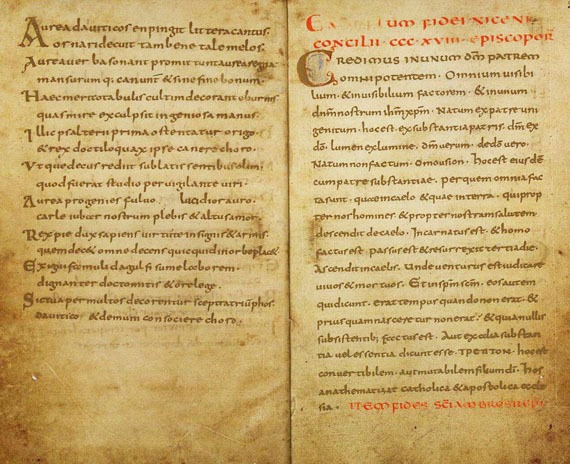 Aurea daviticos en pingit littera cantus.
ornari decuit tam bene tale melos.
Aurea verba sonant promittunt aurea regna
mansurumq; canunt & sine fine bonum.
Haec merito tabulis cultim decorantur eburnis
quas mire exculpsit ingeniosa manus.
Illic psalterii prima ostentatur origo
& rex doctiloquax ipse canere choro.
Utque decus rediit sublatis sentibus olim
quod fuerat studio pervigilante viri.
Aurea progenies fulvo lucidior auro.
carle iubar nostrum plebis & altus amor.
Rex pie dux sapiens virtute insignis & armis.
quem dec& omne decens quicquid in orbe plac&
Exigui famuli dagulfi sume laborem.
dignanter docto mitis & ore lege.
Sic tua per multos decorentur sceptra triumphos.
davitico & demum consociere choro.
um fidei niceni
concilii. ccc. xviii. episcopor
Credimus in unum dm patrem
omnipotentem. Omnium visibi
lium. & invisibilium factorem. & in unum
dnm nostrum ihm xpm. Natum ex patre uni
genitum. hoc est. ex substantia patris. dm ex
do. lumen ex lumine. dm verum. de do vero.
Natum non factum. omousion. hoc est eiusdem
cum patre substantiae. per quem omnia fac
ta sunt. quae in caelo & quae in terra. qui prop
ter nos homines & propter nostram salutem
descendit de caelo. Incarnatus est. & homo
factus est. passus est & resurrexit tertia die.
Ascendit in caelis. Unde venturus est iudicare
vivos & mortuos. Et in spm scm. eos autem
qui dicunt. erat tempus quando non erat. &
priusquam nasceretur non erat. & quia nullis
subsistentib; factus est. Aut ex alia substan
tia vel essentia dicunt esse. TPEΠTON. hoc est
convertibilem. aut mutabilem filium di. hos
anathematizat catholica & apostolica eccle
sia. Item fides sci ambrosii epi